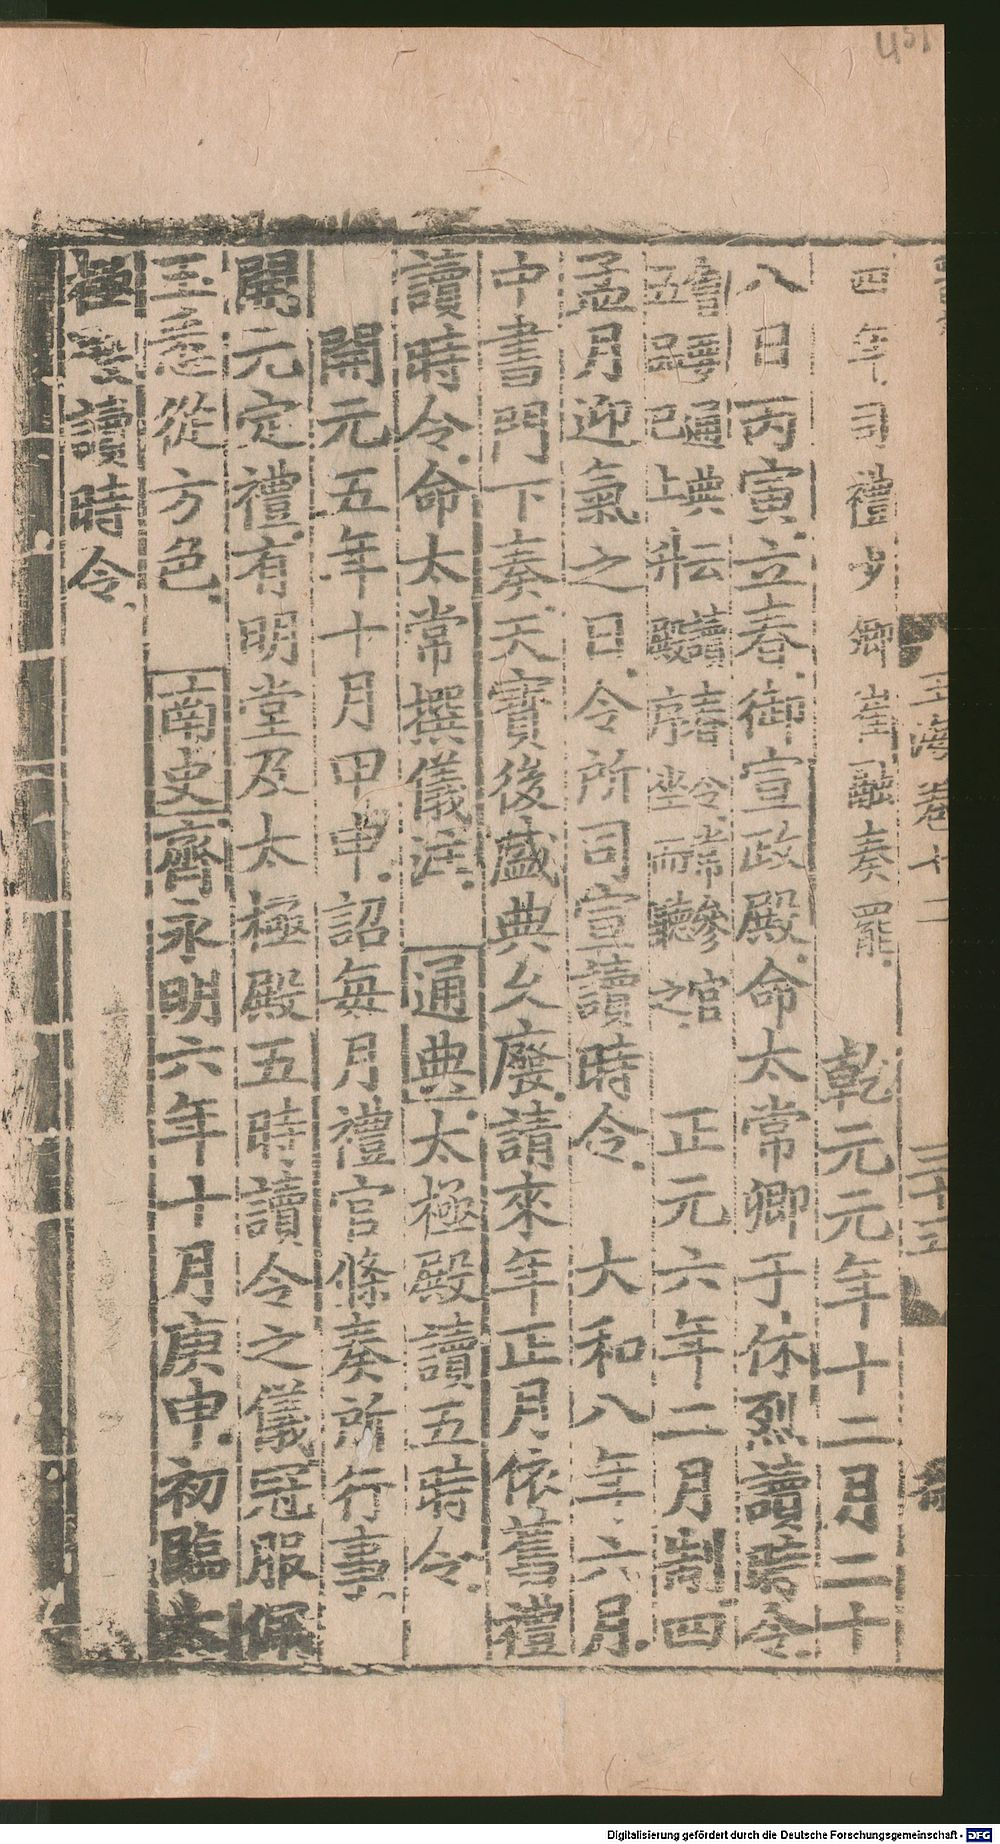 451
玉海卷十二
三十五
四年司禮少卿崔融奏罷 乾元元年十二月二十
八日丙寅立春御宣政殿命太常卿于休烈讀時令
通典云讀時令常參官
五品已上升殿序坐而聽之 正元六年二月制四
孟月迎氣之日令所司宣讀時令 大和八年六月
中書門下奏天寶後盛典久廢請來年正月依舊禮
讀時令命太常撰儀注 通典太極殿讀五時令
開元五年十月甲申詔每月禮官條奏所行事
開元定禮有明堂及太極殿五時讀令之儀冠服佩
玉悉從方色 南史齊永明六年十月庚申初臨太
極殿讀時令
Digitalisierung gefördert durch die Deutsche Forschungsgemeinschaft - DFG